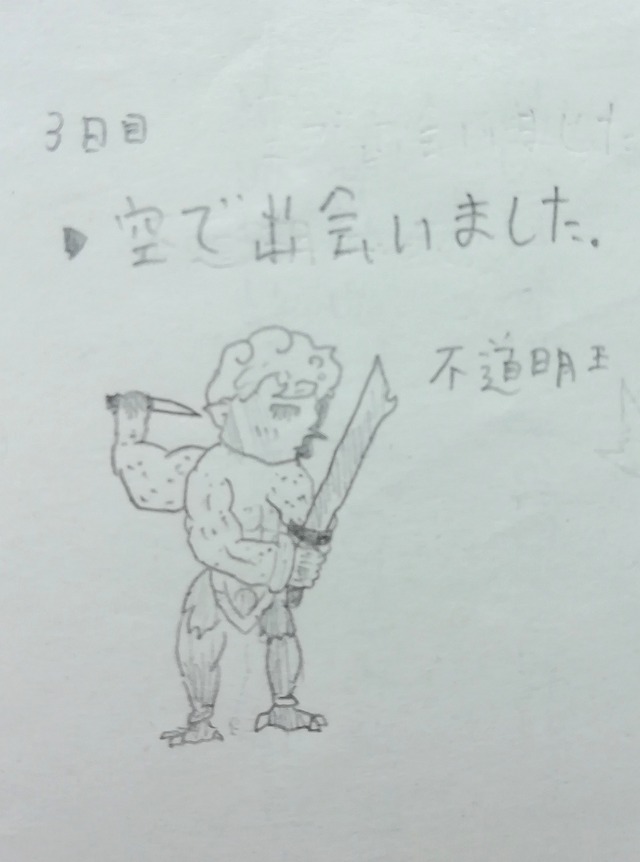 3日目
▶空で出会いました.
不道明王